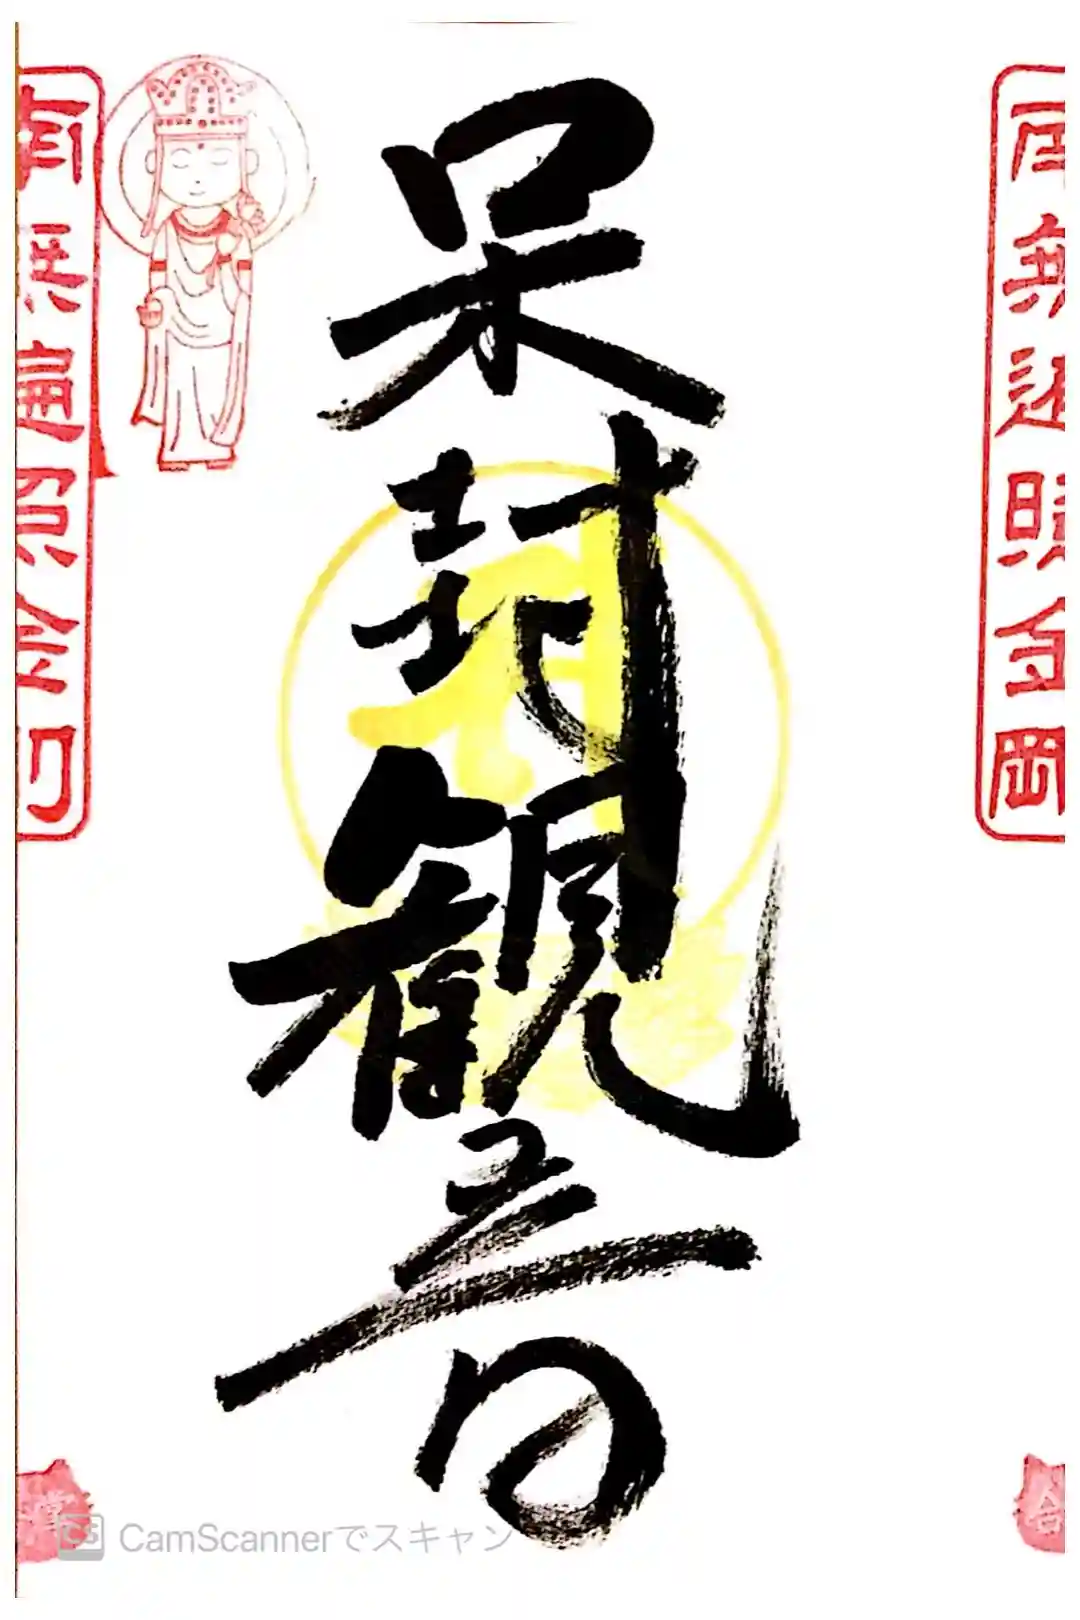 南無遍照金岡
呆封観音
南無遍照金刂
CamScannerでスキャン